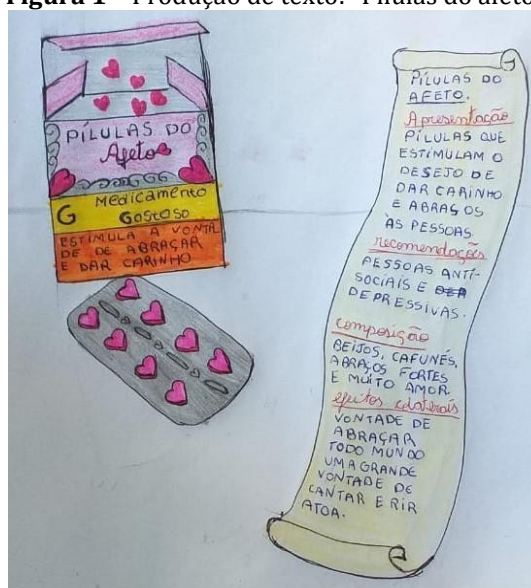 Figura 1 – Produção de texto: "Pílulas do afeto
PÍLULAS DO
Afetos
G Medicamento
Gostoso
ESTIMULA A VONTA
DE DE ABRAÇAR
E DAR CARINHO
PÍLULAS DO
AFETO.
Apresentação
PÍLULAS QUE
ESTÍMULAM O
DESEJO DE
DAR CARINHO
E ABRAÇOS
ÀS PESSOAS
recomendações
PESSOAS ANTI-
SOCIAÍS E
DEPRESSIVAS.
composição
BEIJOS, CAFUNÉS,
ABRAÇOS FORTES
E MUÍTO AMOR
efeitos colaterais
VONTADE DE
ABRAÇAR
TODO MUNDO
UMA GRANDE
VONTADE DE
CANTAR E RIR
ATOA.